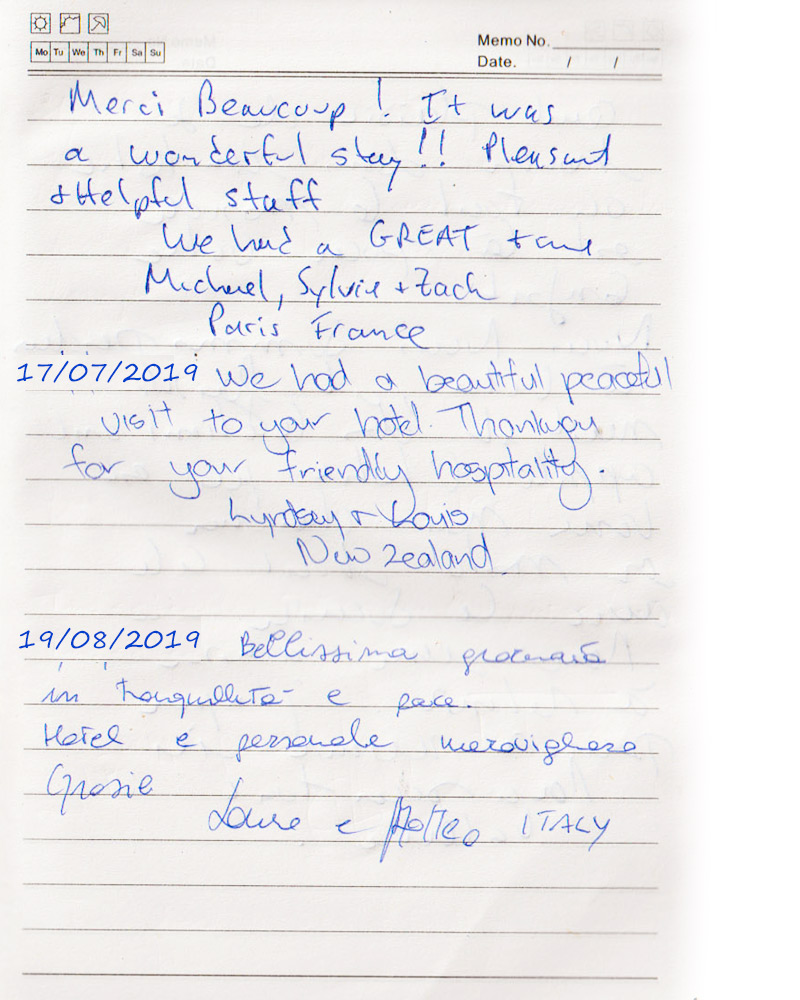 Mo Tu We Th Fr Sa Su
Memo No.
Date. / /
Merci Beaucoup! It was
a wonderful stay!! Pleasant
+ Helpful staff
We had a GREAT time
Michael, Sylvie + Zach
Paris France
17/07/2019 We had a beautiful peaceful
visit to your hotel. Thankyou
for your friendly hospitality.
Lyndsay + Louis
New Zealand
19/08/2019 Bellissima giornata
in tranquillità e pace.
Hotel e personale meraviglioso
Grazie
Laura e Matteo ITALY